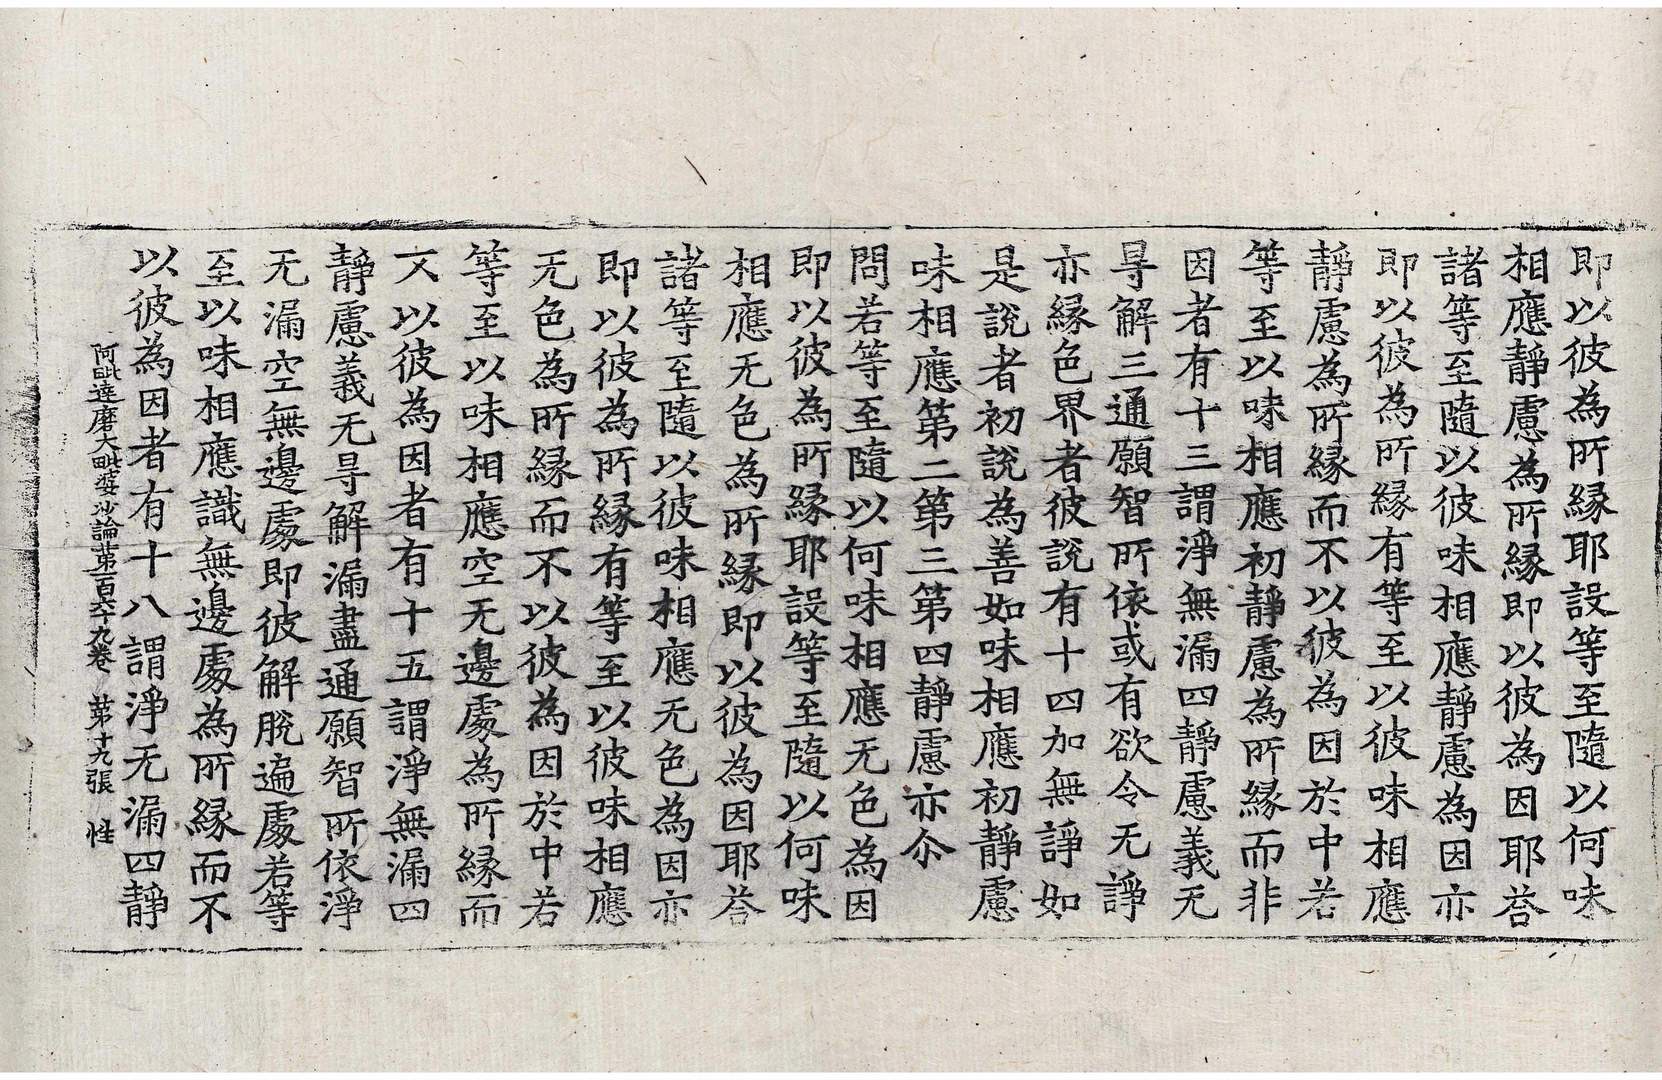 即以彼為所縁耶設等至隨以何味
相應靜慮為所縁即以彼為因耶荅
諸等至隨以彼味相應靜慮為因亦
即以彼為所縁有等至以彼味相應
靜慮為所縁而不以彼為因於中若
等至以味相應初靜慮為所縁而非
因者有十三謂淨無漏四靜慮義无
㝵解三通願智所依或有欲令无諍
亦縁色界者彼說有十四加無諍如
是說者初說為善如味相應初靜慮
味相應第二第三第四靜慮亦尒
問若等至隨以何味相應无色為因
即以彼為所縁耶設等至隨以何味
相應无色為所縁即以彼為因耶荅
諸等至隨以彼味相應无色為因亦
即以彼為所縁有等至以彼味相應
无色為所縁而不以彼為因於中若
等至以味相應空无邊處為所縁而
又以彼為因者有十五謂淨無漏四
靜慮義无㝵解漏盡通願智所依淨
无漏空無邊處即彼解脫遍處若等
至以味相應識無邊處為所縁而不
以彼為因者有十八謂淨无漏四靜
阿毗達磨大毗婆沙論第一百六十九卷 第十九張 性